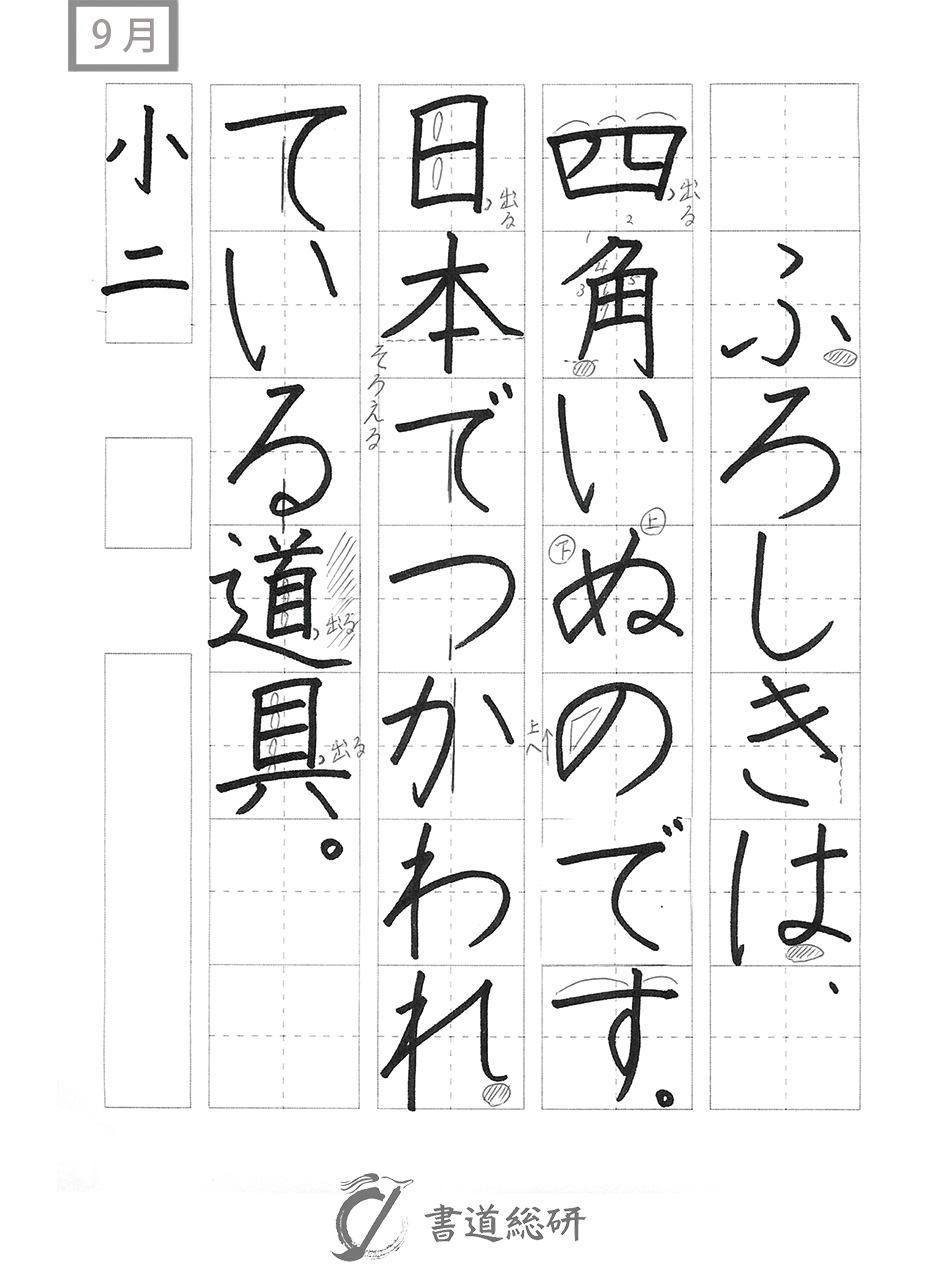 9月
ふろしきは、
四角いぬのです。
日本でつかわれ
ている道具。
小二
出る
1
2
3
4
5
上
下
上へ
出る
そろえる
出る
出る
書道総研